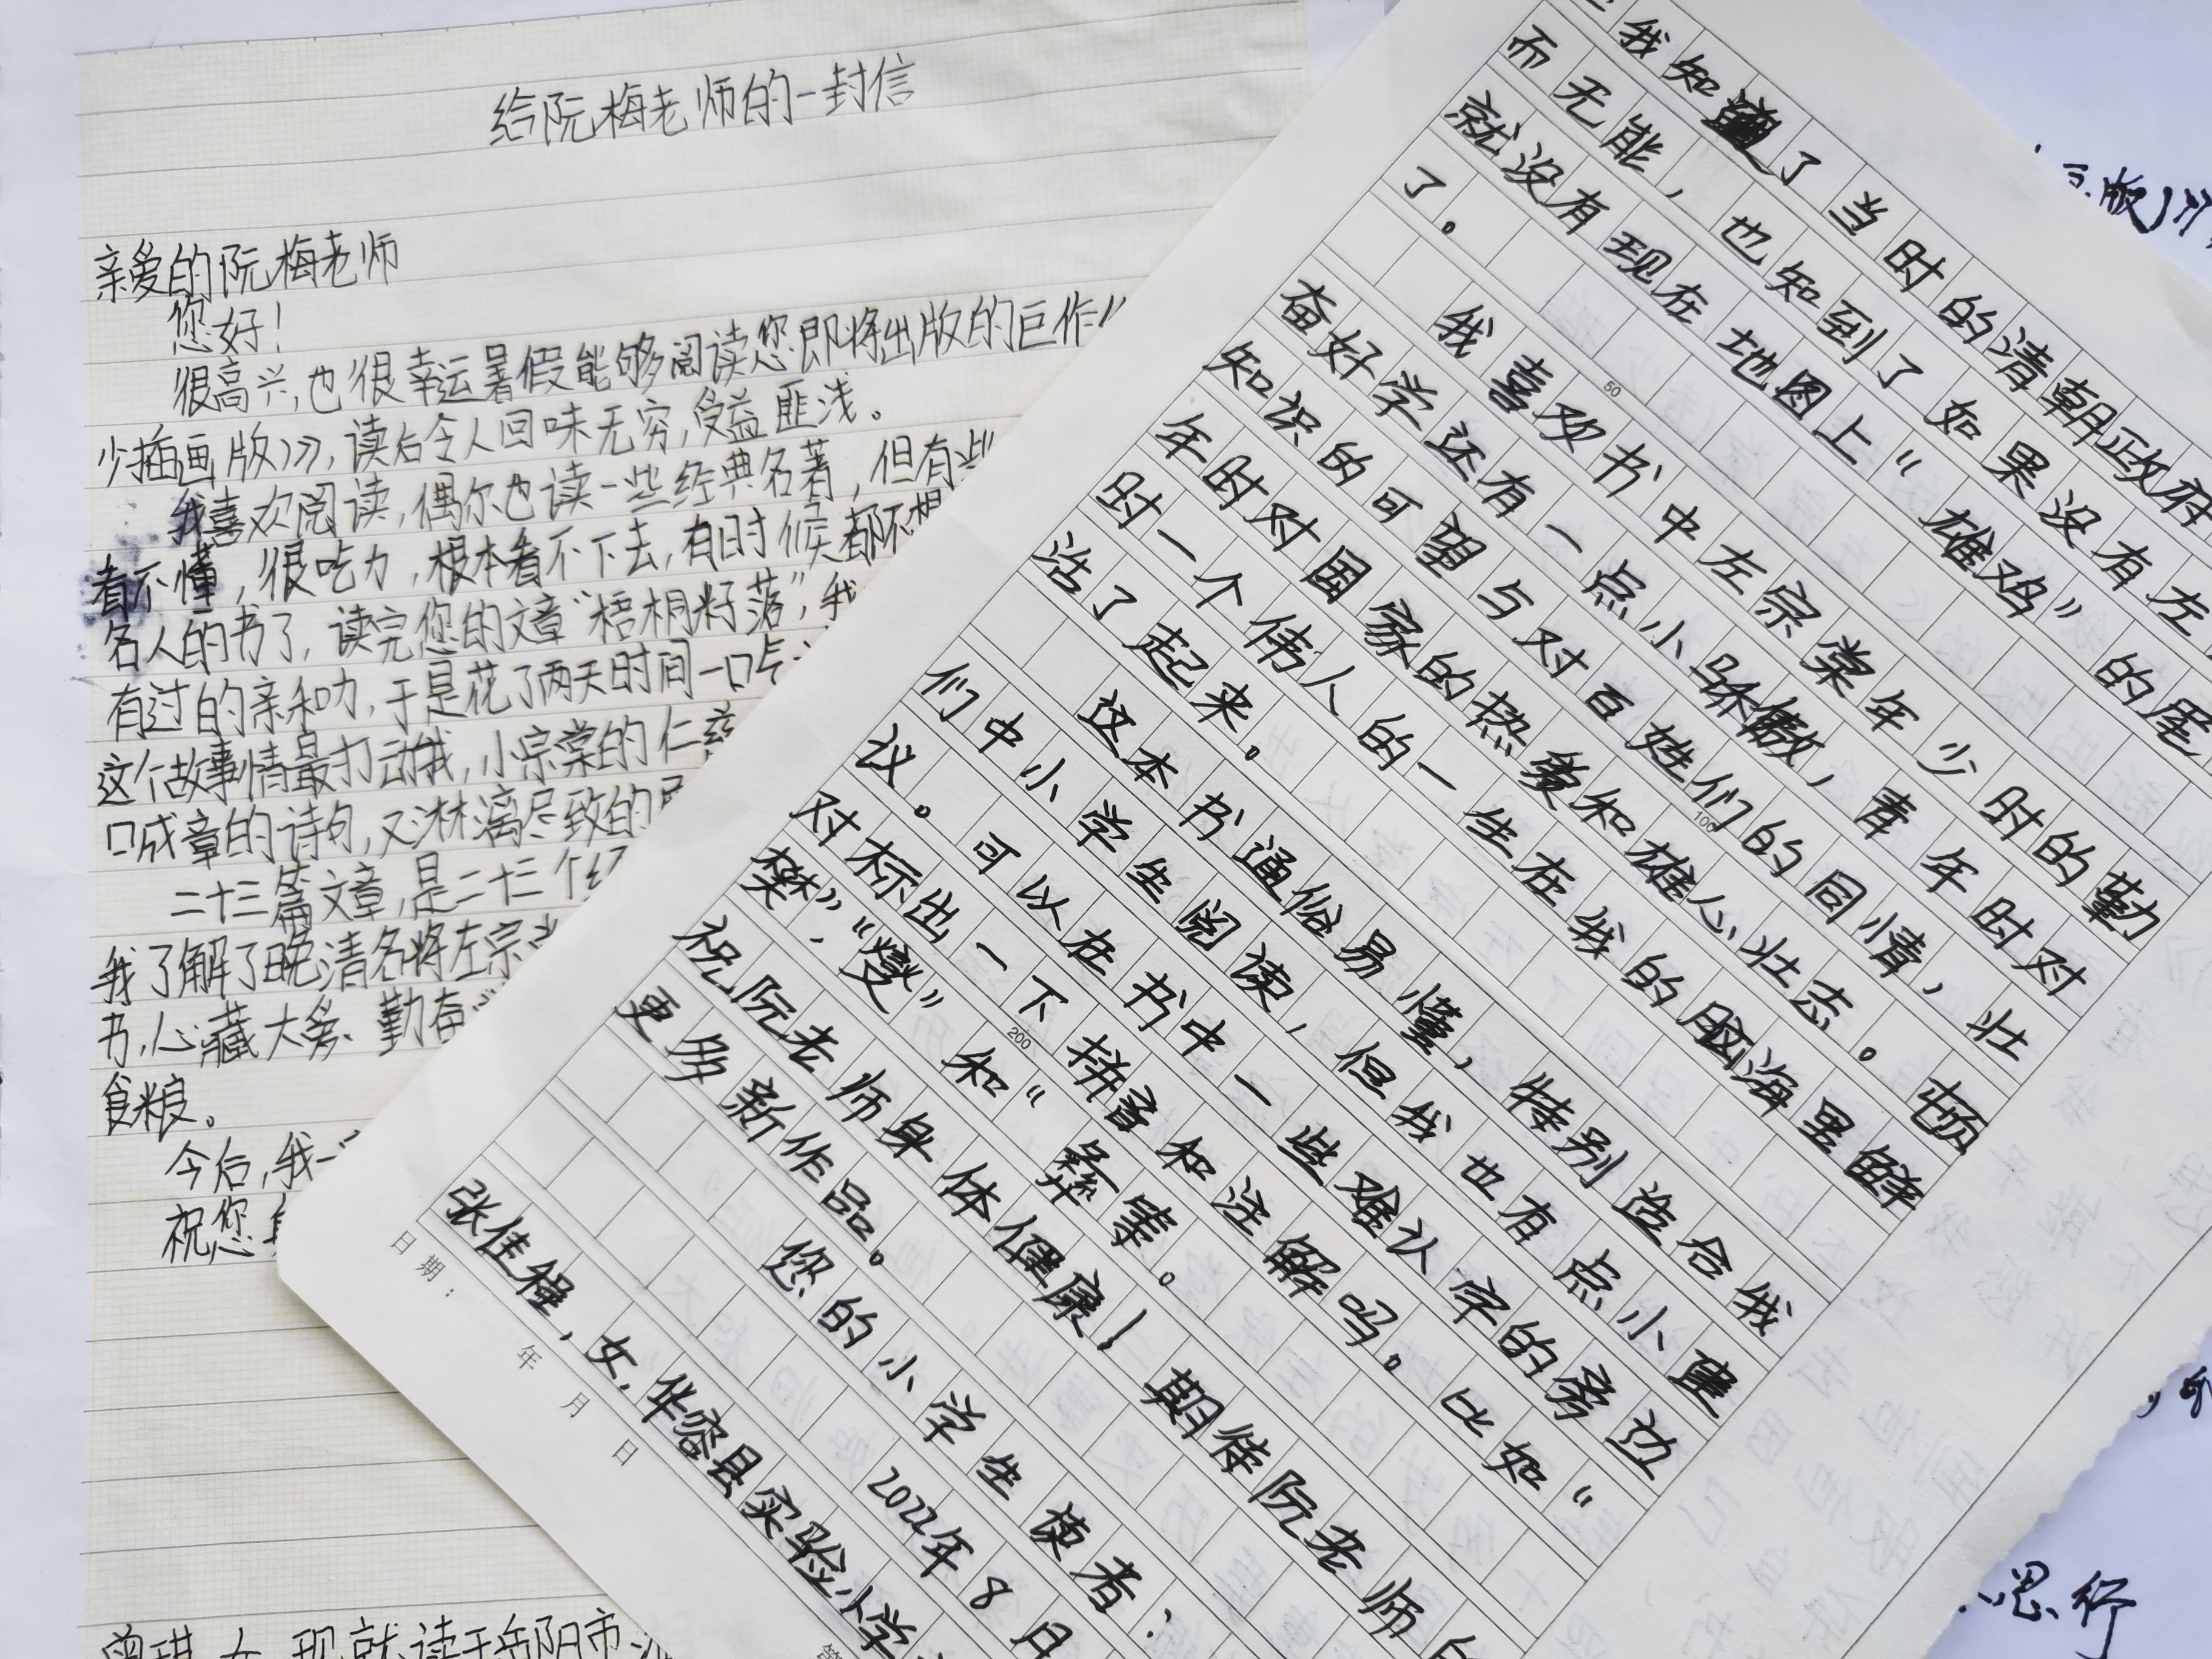 给阮梅老师的一封信
亲爱的阮梅老师
您好!
很高兴,也很幸运暑假能够阅读您即将出版的巨作《
少插画版)》,读后令人回味无穷,受益匪浅。
我喜欢阅读,偶尔也读一些经典名著,但有些
看不懂,很吃力,根本看不下去,有时候都不想
名人的书了,读完您的文章“梧桐籽落”,我
有过的亲和力,于是花了两天时间一口气
这个故事情最打动我,小宗棠的仁慈
口成章的诗句,又淋漓尽致的
二十三篇文章,是二十三个
我了解了晚清名将左宗
书,心藏大爱、勤奋
食粮。
今后,我一
祝您
女 现就读于岳阳市
我知道了当时的清朝政府
而无能,也知到了如果没有左
就没有现在地图上“雄鸡”的尾
了。
我喜欢书中左宗棠年少时的勤
奋好学还有一点小骄傲,青年时对
知识的可望与对百姓们的同情,壮
年时对国家的热爱和雄心壮志。顿
时一个伟人的一生在我的脑海里鲜
活了起来。
这本书通俗易懂,特别适合我
们中小学生阅读,但我也有点小建
议。可以在书中一些难认字的旁边
对标出一下拼音和注解吗。比如“
樊”、“燮”和“彝等。
祝阮老师身体健康!期待阮老师的
更多新作品。
您的小学生读者:
2022年8月
张佳程,女,华容县实验小学
日期: 年 月 日
版)
思行
50
100
200